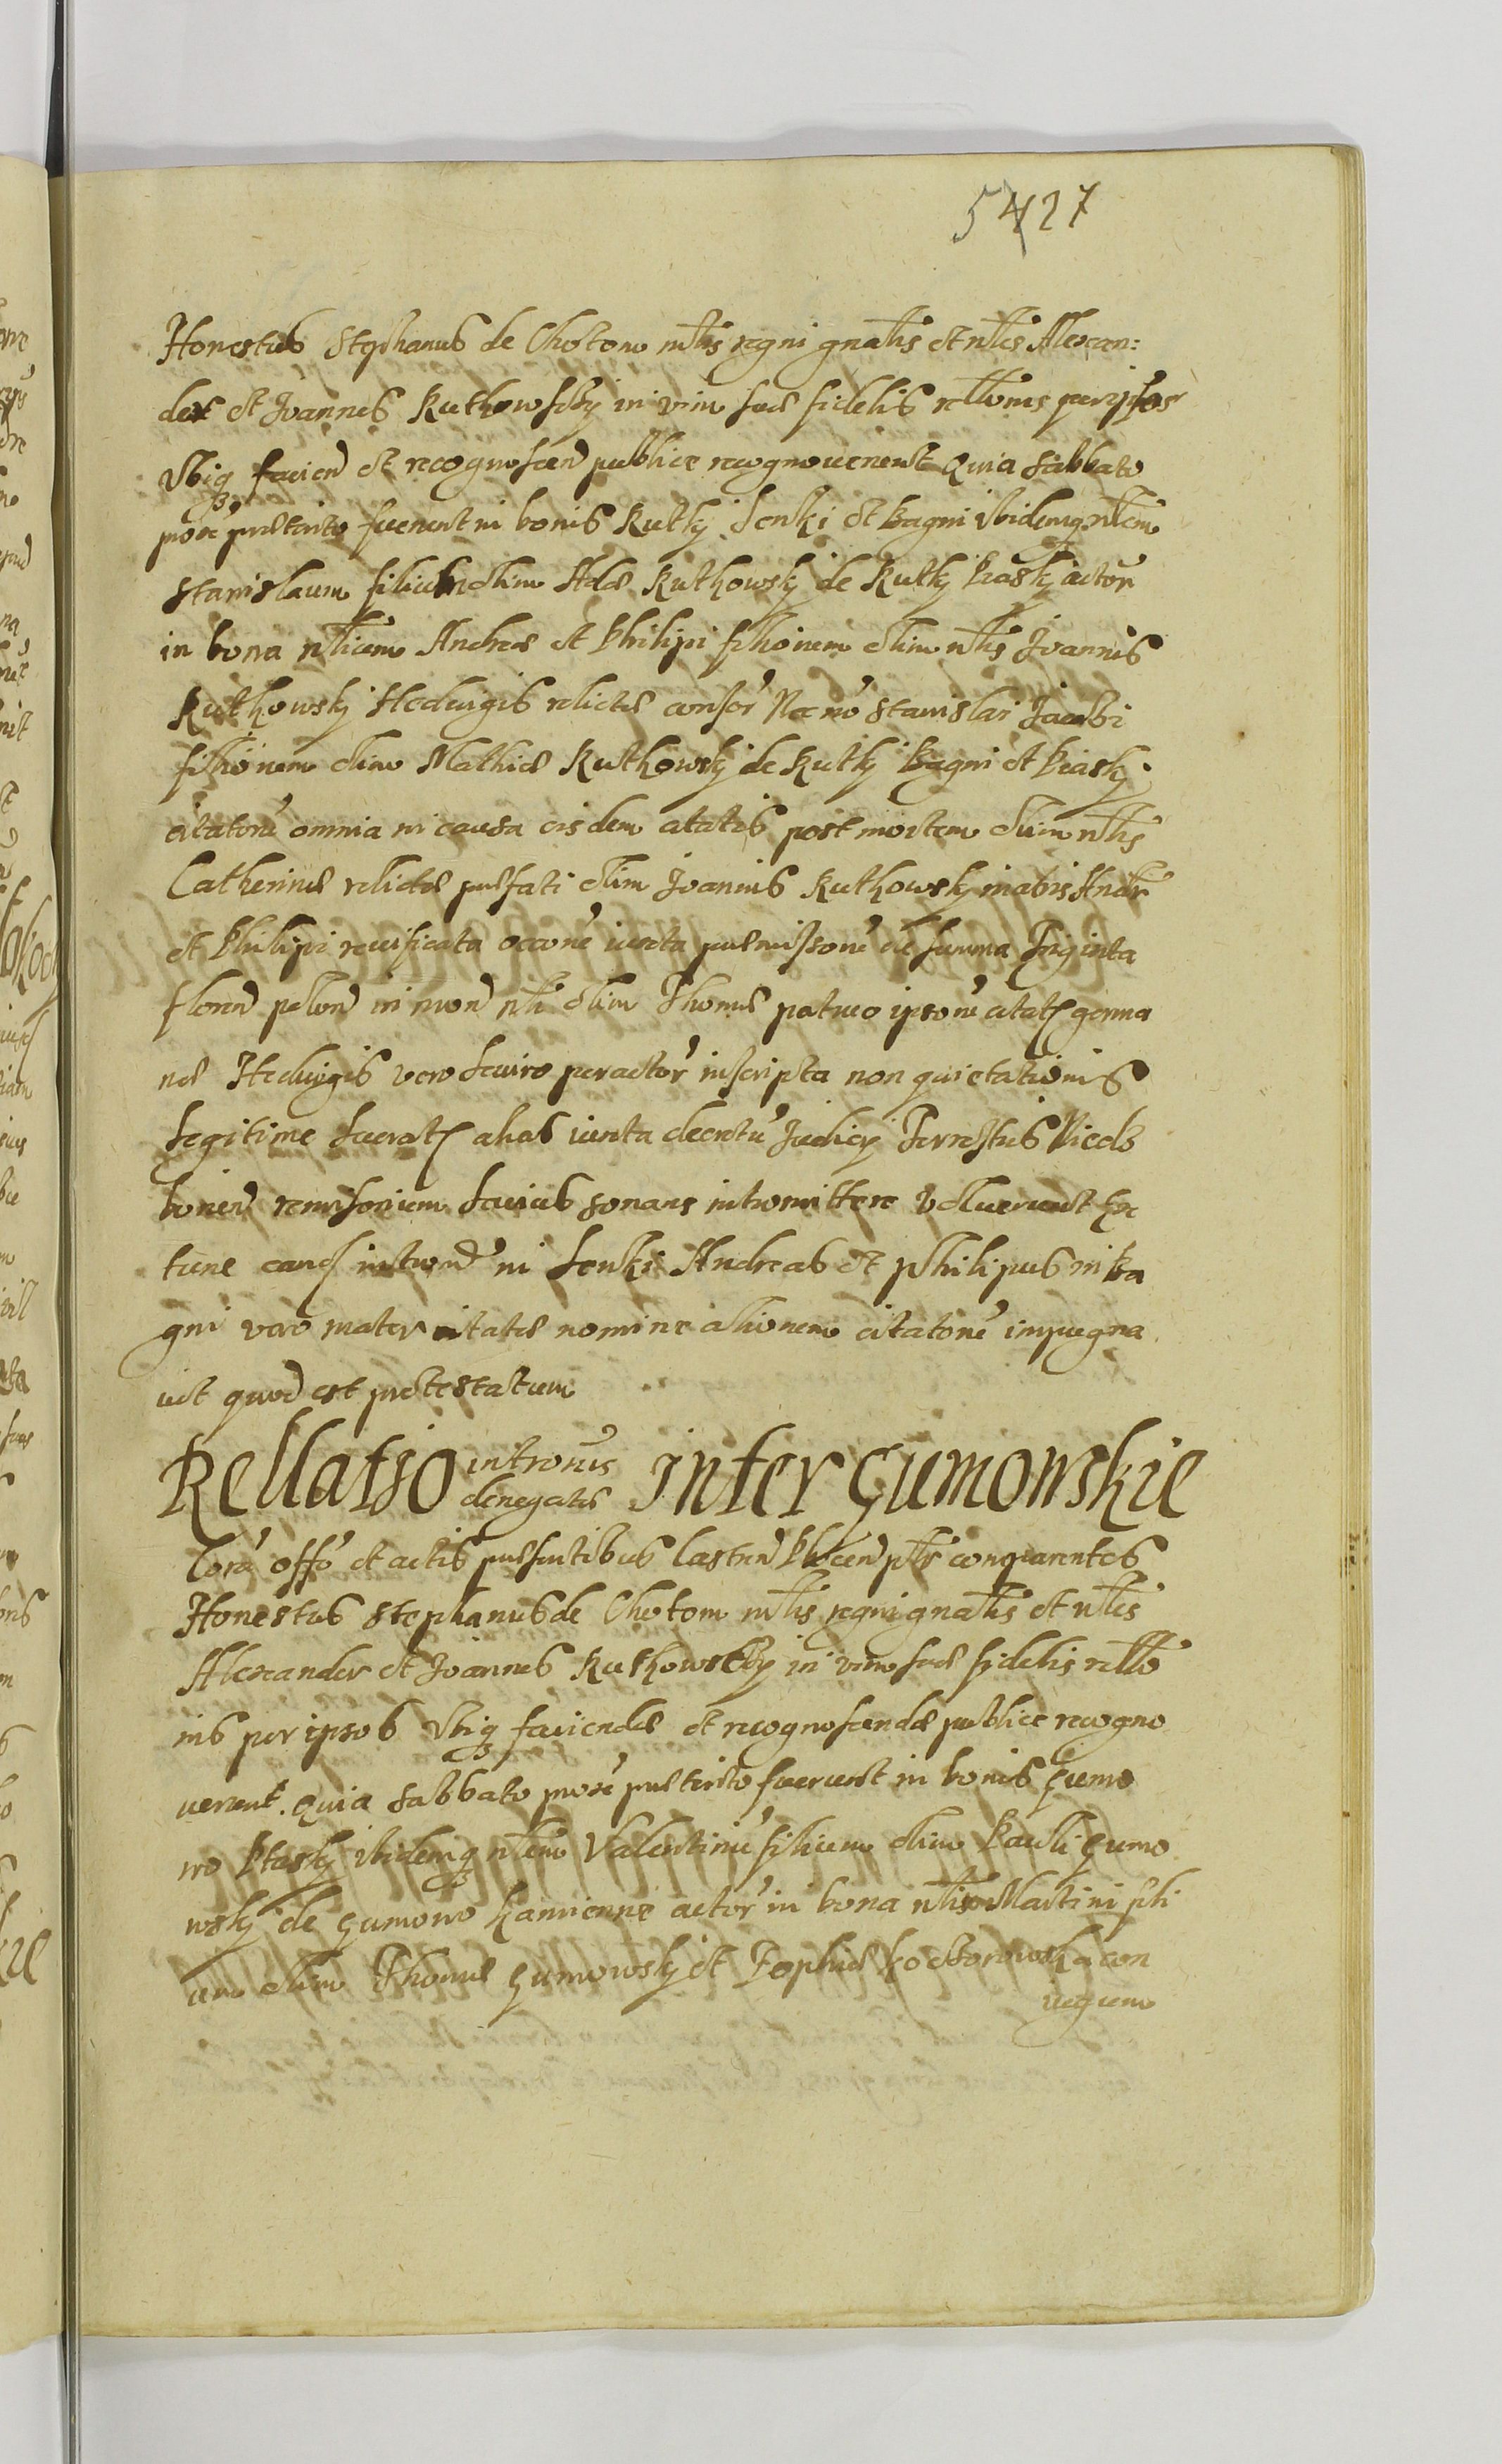 5427
Honestus Stephanus de Chotom mtris regni gnalis et ntles Alexan:
der et Joannes Ruthowsky in vim suae fidelis retionis per ipsos
Vbiq faciend et recognoscend publice recognouerunt Quia sabbato
prox praeterito fuerunt in bonis Rutky Lenki et Bagni ibidemq ntlem
Stanislaum filium olim Adae Ruthowsky de Rutky Piasky actor
in bona ntlium Andreae et Philipi filiorum olim ntlis Joannis
Ruthowsky Heduigis relictae consor Nec no Stanislai Jacobi
filiorum olim Mathiae Ruthowsky de Rutky Bagni et Piasky
citatoru omnia in causa eisdem citatis post mortem olim ntlis
Catherinae relictae praefati olim Joannis Ruthowsky matris Andr
et Philipi reuificata occone iuxta praemissione de summa Triginta
floren polon in mon ntli olim Thomae patruo ipsoru citat germa
nae Heduigis vero leuiro per actor inscripta non quietationis
Legitime fuerat alias iuxta decretu Judicy Terrestris Ciechs
lonien remissorium latius sonans intromittere Voluerunt Ex
tunc eand introm in Lenki Andreas et Philipus in Ba
gni vero mater citatae nomine aliorum citatoru impugna
uit quod est protestatum
Rellatio intronis denegatae inter Gumowskie
Cora offo et actis praesentibus Castren Plocen ptr comparentes
Honestus Stephanus de Chotom mtris regni gnalis et ntles
Alexander et Joannes Ruthowsky in vim suae fidelis rello
nis per ipsos Vbiq faciendae et recognoscendae publice recogno
uerunt. Quia sabbato prox praeterito fuerunt in bonis Gumo
wo Ptasky ibidemq ntlem Valentinu filium olim Pauli Gumo
wsky de Gumowo Kamienne actor in bona ntlis Martini fili
um olim Thomae Gumowsky et Zophiae con
iugum